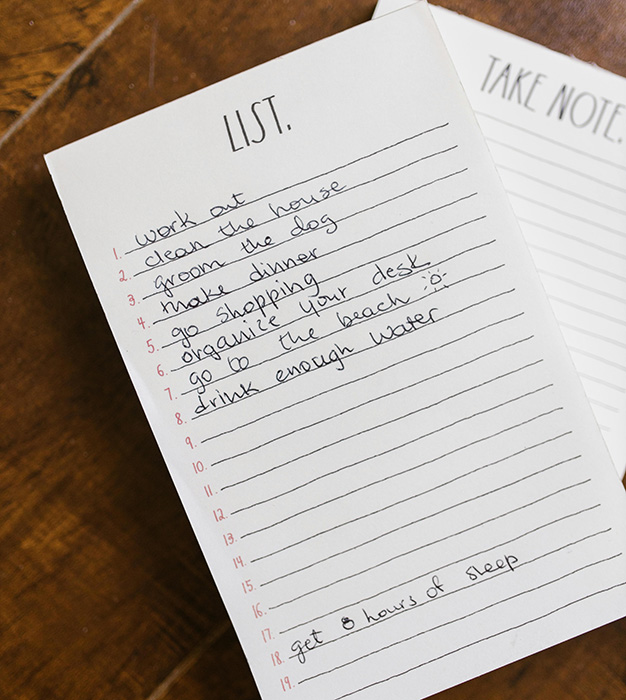 LIST.
1. work out
2. clean the house
3. groom the dog
4. make dinner
5. go shopping
6. organize your desk
7. go to the beach
8. drink enough water
9.
10.
11.
12.
13.
14.
15.
16.
17.
18. get 8 hours of sleep
19.
TAKE NOTE.